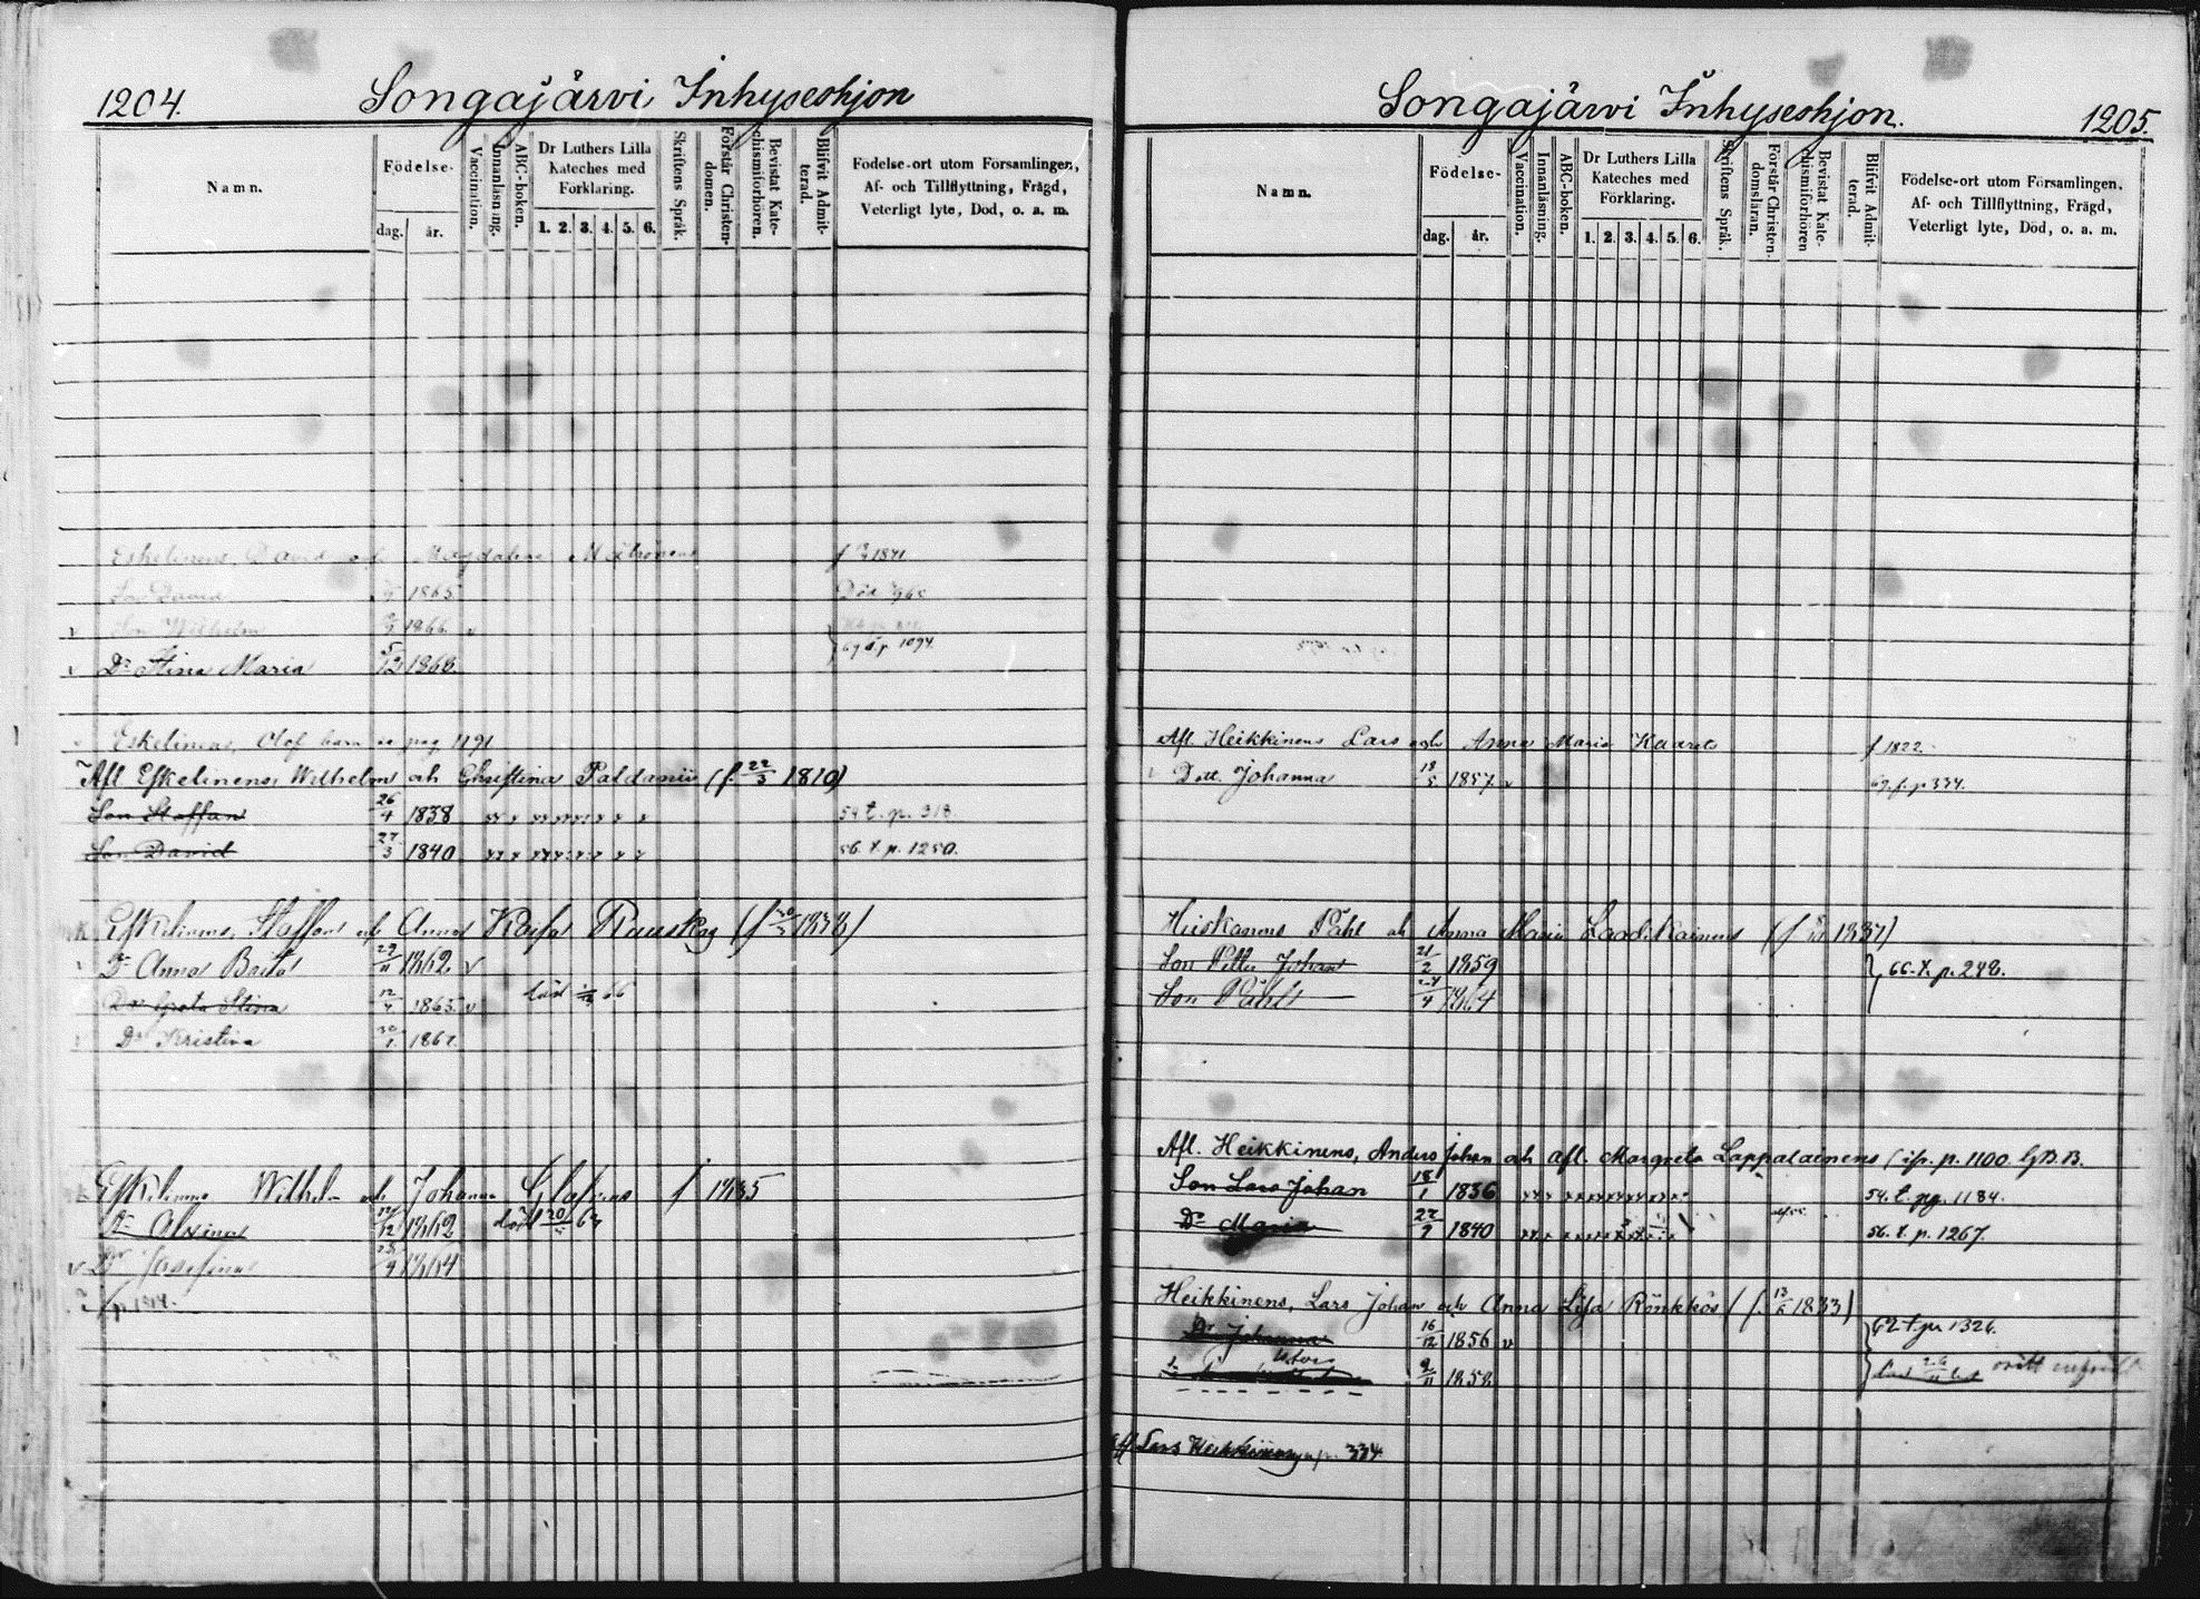 1204.
Songajärvi Inhyseshjon
Namn.
Födelse-
dag. år.
Vaccination.
Innanläsning.
ABC-boken.
Dr Luthers Lilla
Kateches med
Förklaring.
1. 2. 3. 4. 5. 6.
Skriftens Språk.
Förstår Christen-
domen.
Bevistat Kate-
chismiförhören.
Blifvit Admit-
terad.
Födelse-ort utom Församlingen,
Af- och Tillflyttning, Frägd,
Veterligt lyte, Död, o. a. m.
Eskelinens, David och Magdalena
Son David 1865
Son Wilhelm 1866 v
Dr Stina Maria 5/12 1868 69 t. p. 1094.
Eskelinens, Olof barn pag 1191
Afl Eskelinens, Wilhelm och Christina Paldanii (f. 22/3 1810)
Son Staffan 26/4 1838 54 t. p. 318.
Son David 27/3 1840 56. t. p. 1250.
Eskelinens, Staffan och Anna Kaisa (f 1838)
Dr Anna Brita 29/11 1862 v
Dr Greta Stina 12/4 1865 v död 66
Dr Kristina 30/1 1867
Eskelinens Wilhelm och Johanna f 1835
Dr Alvina 12 1862 död 20 63
Dr Josefina 9 1864
Songajärvi Inhyseshjon.
1205.
Namn.
Födelse-
dag. år.
Vaccination.
Innanläsning.
ABC-boken.
Dr Luthers Lilla
Kateches med
Förklaring.
1. 2. 3. 4. 5. 6.
Skriftens Språk.
Förstår Christen-
domsläran.
Bevistat Kate-
chismiförhören
Blifvit Admit-
terad.
Födelse-ort utom Församlingen,
Af- och Tillflyttning, Frägd,
Veterligt lyte, Död, o. a. m.
Afl. Heikkinens Lars och Anna Maria f 1822
Dott. Johanna 18/5 1857. v 69. f. p 334.
Hiiskanens Påhl och Anna Maria Laadikainens (f 1837)
Son Petter Johan 21/2 1859 66. t. p. 248.
Son Påhl 24/4 1864
Afl. Heikkinens, Anders Johan och afl. Margreta Lappalainens (ifr. p. 1100. G.B.B.
Son Lars Johan 18/1 1836 54. t. pg. 1184.
Dr Maria 27/9 1840 56. t. p. 1267.
Heikkinens, Lars Johan och Anna Lisa Rönkkös (f. 13/5 1833)
Dr Johanna 16/12 1856 v 62 t. p. 1326.
9/11 1858 orätt
Lars Heikkinens p. 334.